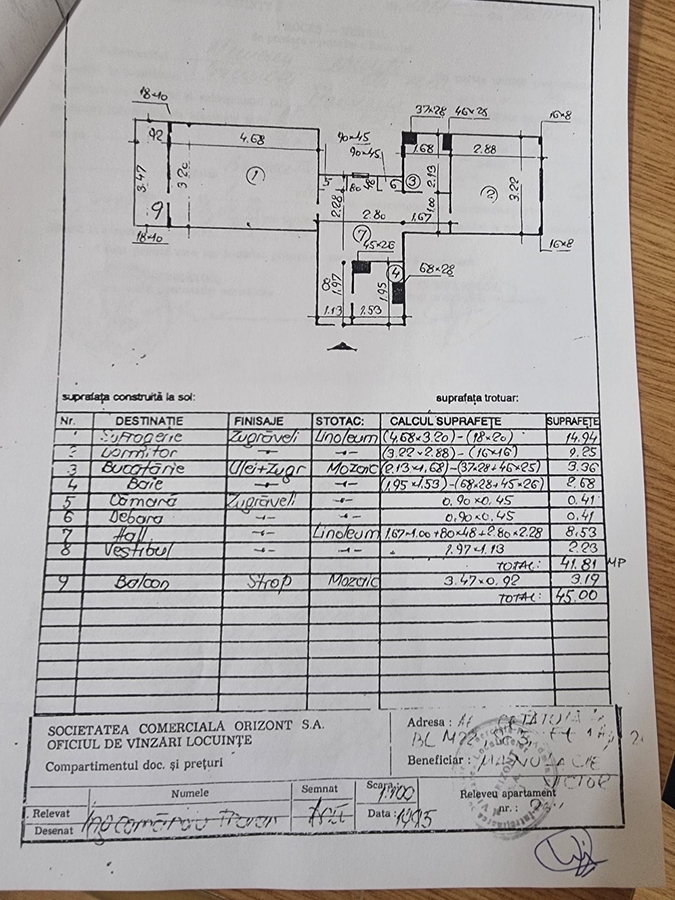 18×10
37×28 46×28
16×8
92 4.68
90×45
90×45
1.68 2.88
3.47 3.20
1
5 80 6
3 2.13
2
3.22
9
2.28
2.80
1.00
1.67
18×10
7
45×26
16×8
4
68×28
8 1.97
1.95
1.13 1.53
suprafața construită la sol: suprafața trotuar:
Nr. DESTINAȚIE FINISAJE STOTAC: CALCUL SUPRAFEȚE SUPRAFEȚE
1 Sufragerie Zugrăveli Linoleum (4.68×3.20)-(18×20) 14.94
2 Dormitor -"- -"- (3.22×2.88)-(16×16) 9.25
3 Bucătărie Ulei+Zugr Mozaic (2.13×1.68)-(37×28+46×25) 3.36
4 Baie -"- -"- (1.95×1.53)-(68×28+45×26) 2.68
5 Cămară Zugrăveli -"- 0.90×0.45 0.41
6 Debara -"- -"- 0.90×0.45 0.41
7 Hall -"- Linoleum 1.67×1.00+80×48+2.80×2.28 8.53
8 Vestibul -"- -"- 1.97×1.13 2.23
TOTAL: 41.81 MP
9 Balcon Strop Mozaic 3.47×0.92 3.19
TOTAL: 45.00
SOCIETATEA COMERCIALĂ ORIZONT S.A.
OFICIUL DE VÎNZĂRI LOCUINȚE
Compartimentul doc. și prețuri
Adresa :
BL M22
Beneficiar : MANOLACIE
VICTOR
Numele Semnat Scara: 1:100
Releveu apartament
nr. :
Relevat
Desenat
Data : 1995